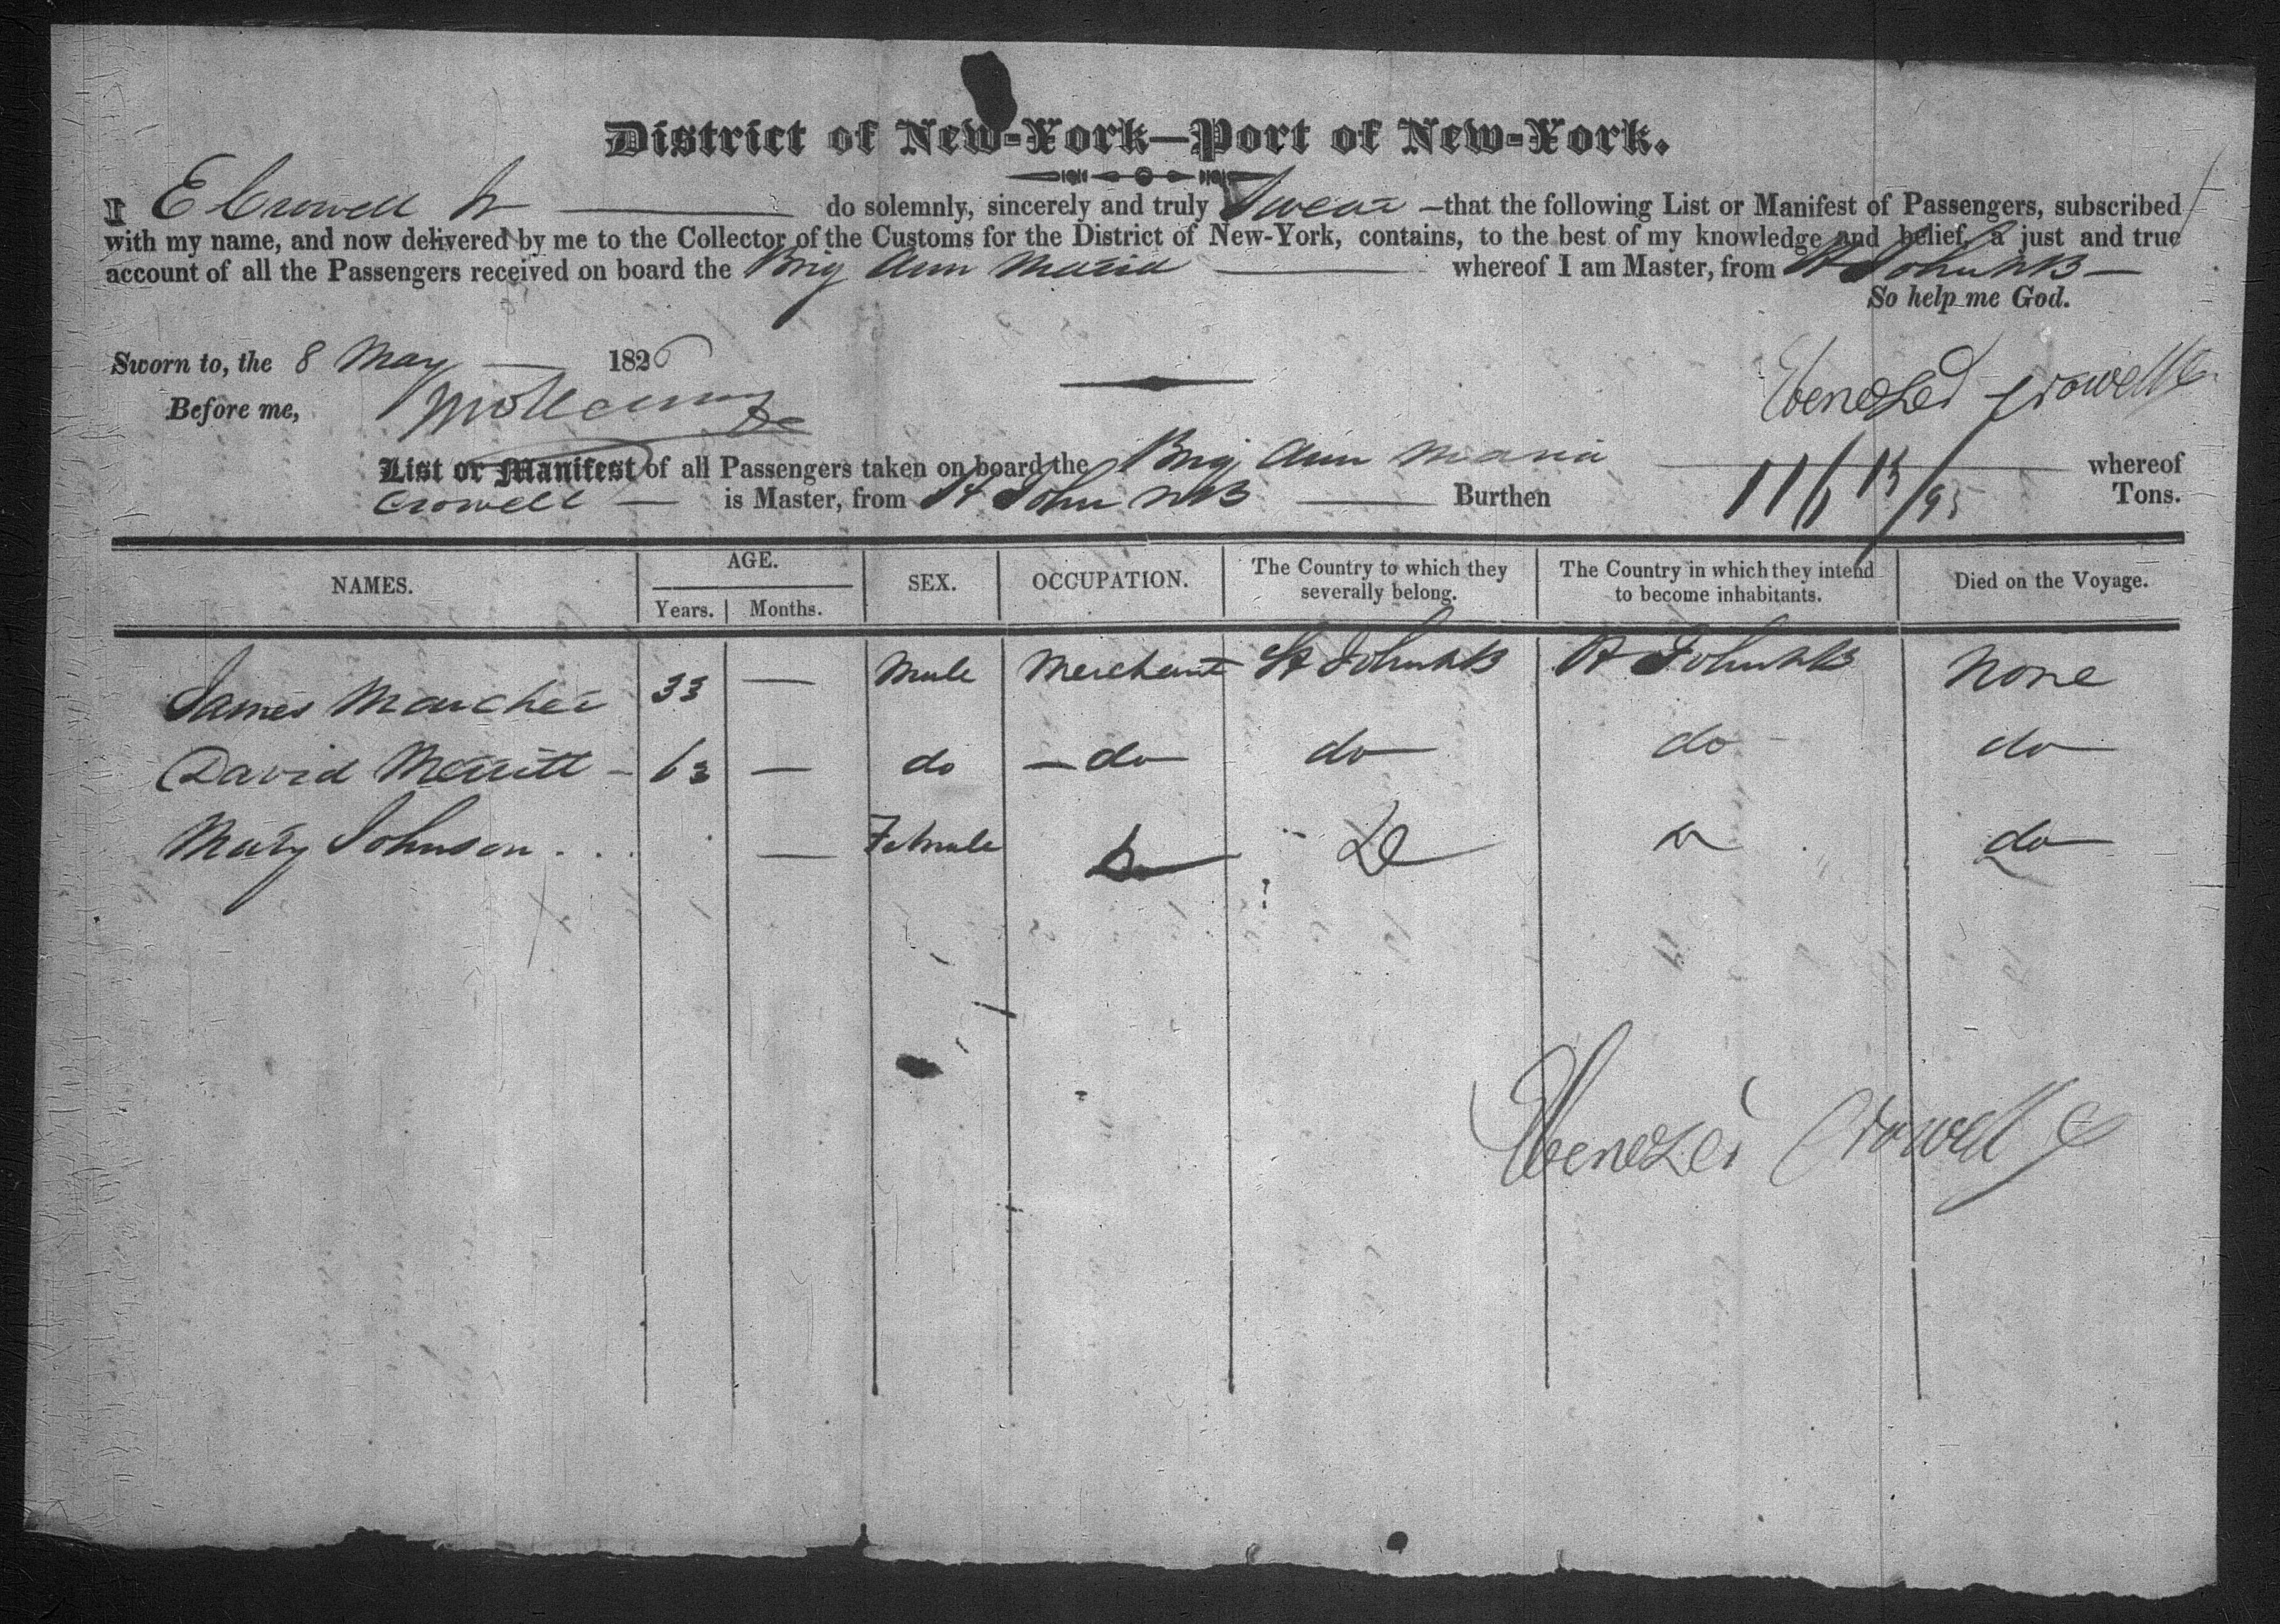 District of New-York—Port of New-York.
I E Crowell Jr do solemnly, sincerely and truly Swear —that the following List or Manifest of Passengers, subscribed
with my name, and now delivered by me to the Collector of the Customs for the District of New-York, contains, to the best of my knowledge and belief, a just and true
account of all the Passengers received on board the Brig Ann Maria whereof I am Master, from St John NB —
So help me God.
Sworn to, the 8 May — 1826
Before me,
Ebenezer Crowell Jr
List or Manifest of all Passengers taken on board the Brig Ann Maria whereof
Crowell — is Master, from St John NB Burthen 116 13/95 Tons.
NAMES. AGE. Years. Months. SEX. OCCUPATION. The Country to which they severally belong. The Country in which they intend to become inhabitants. Died on the Voyage.
James 33 — Male Merchant St John NB St John NB None
David Merritt — 63 — do — do do do do
Mary Johnson — Female do
Ebenezer Crowell Jr